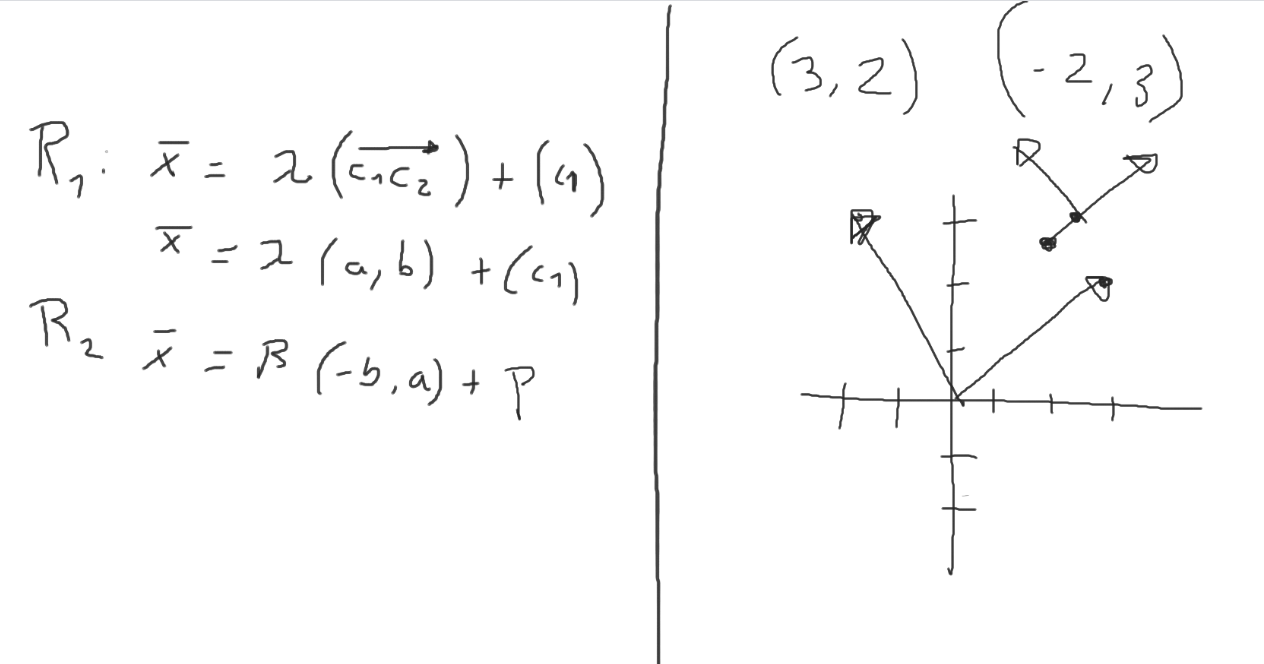 R₁: x̄ = λ(c₁c₂→) + (c₁)
x̄ = λ(a, b) + (c₁)
R₂ x̄ = β(-b, a) + P
(3, 2) (-2, 3)